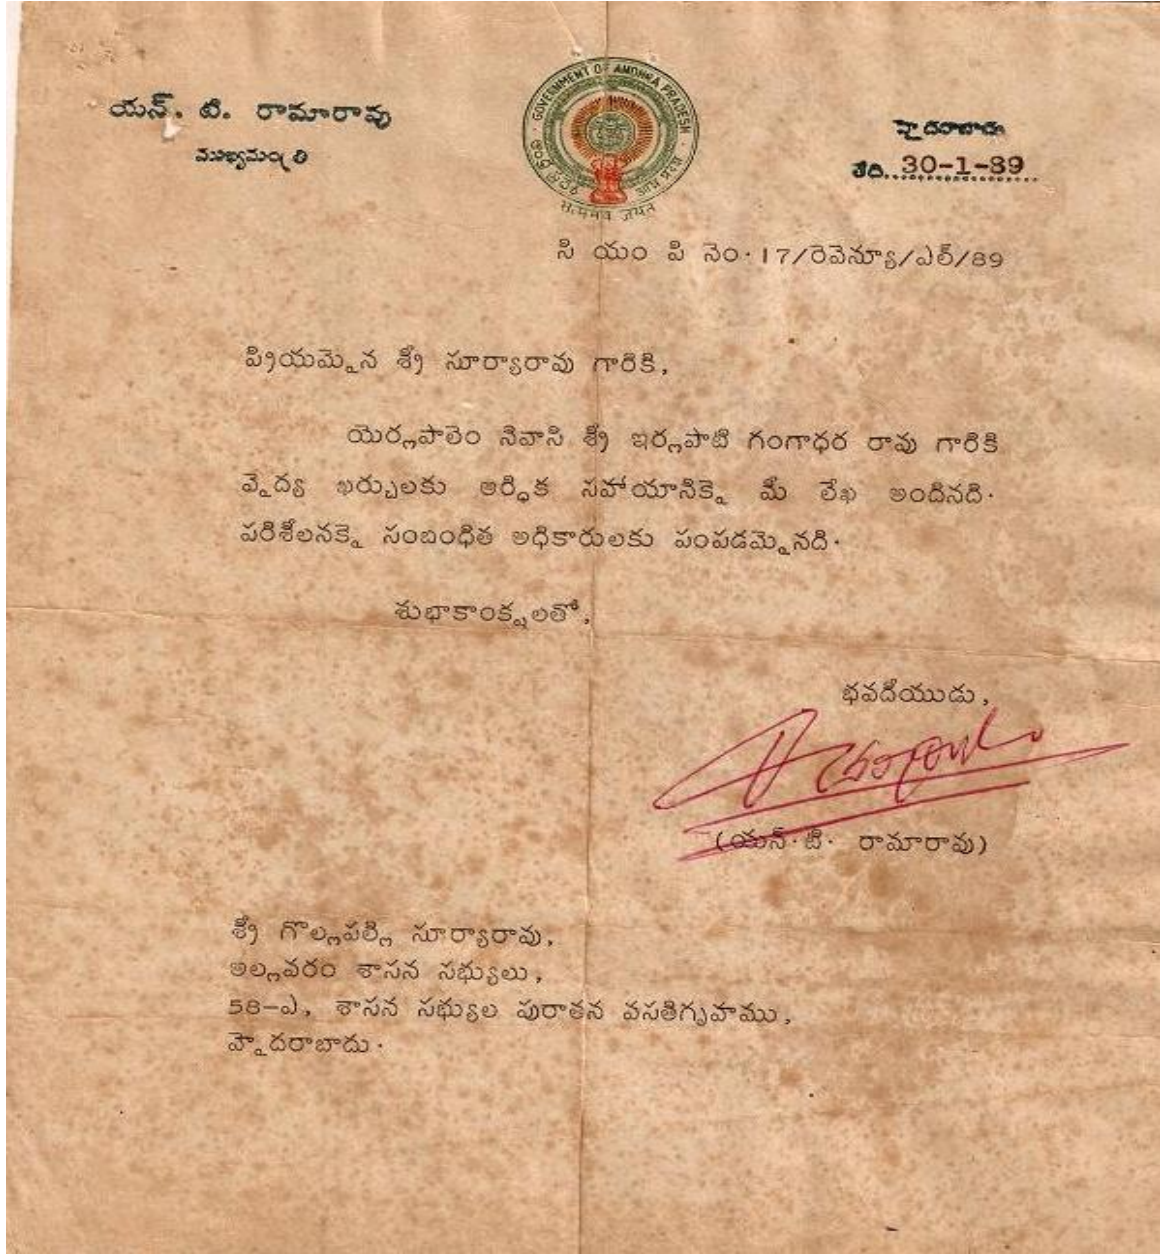 యన్. టి. రామారావు
ముఖ్యమంత్రి
GOVERNMENT OF ANDHRA PRADESH
ఆంధ్ర ప్రదేశ్
आन्ध्र प्रदेश
सत्यमेव जयते
హైదరాబాదు
తేది. 30-1-89
సి యం పి నెం. 17/రెవెన్యూ/ఎల్/89
ప్రియమైన శ్రీ సూర్యారావు గారికి,
యెర్లపాలెం నివాసి శ్రీ ఇర్లపాటి గంగాధర రావు గారికి
వైద్య ఖర్చులకు ఆర్థిక సహాయానికై మీ లేఖ అందినది.
పరిశీలనకై సంబంధిత అధికారులకు పంపడమైనది.
శుభాకాంక్షలతో,
భవదీయుడు,
(యన్.టి. రామారావు)
శ్రీ గొల్లపల్లి సూర్యారావు,
అల్లవరం శాసన సభ్యులు,
58-ఎ, శాసన సభ్యుల పురాతన వసతిగృహము,
హైదరాబాదు.